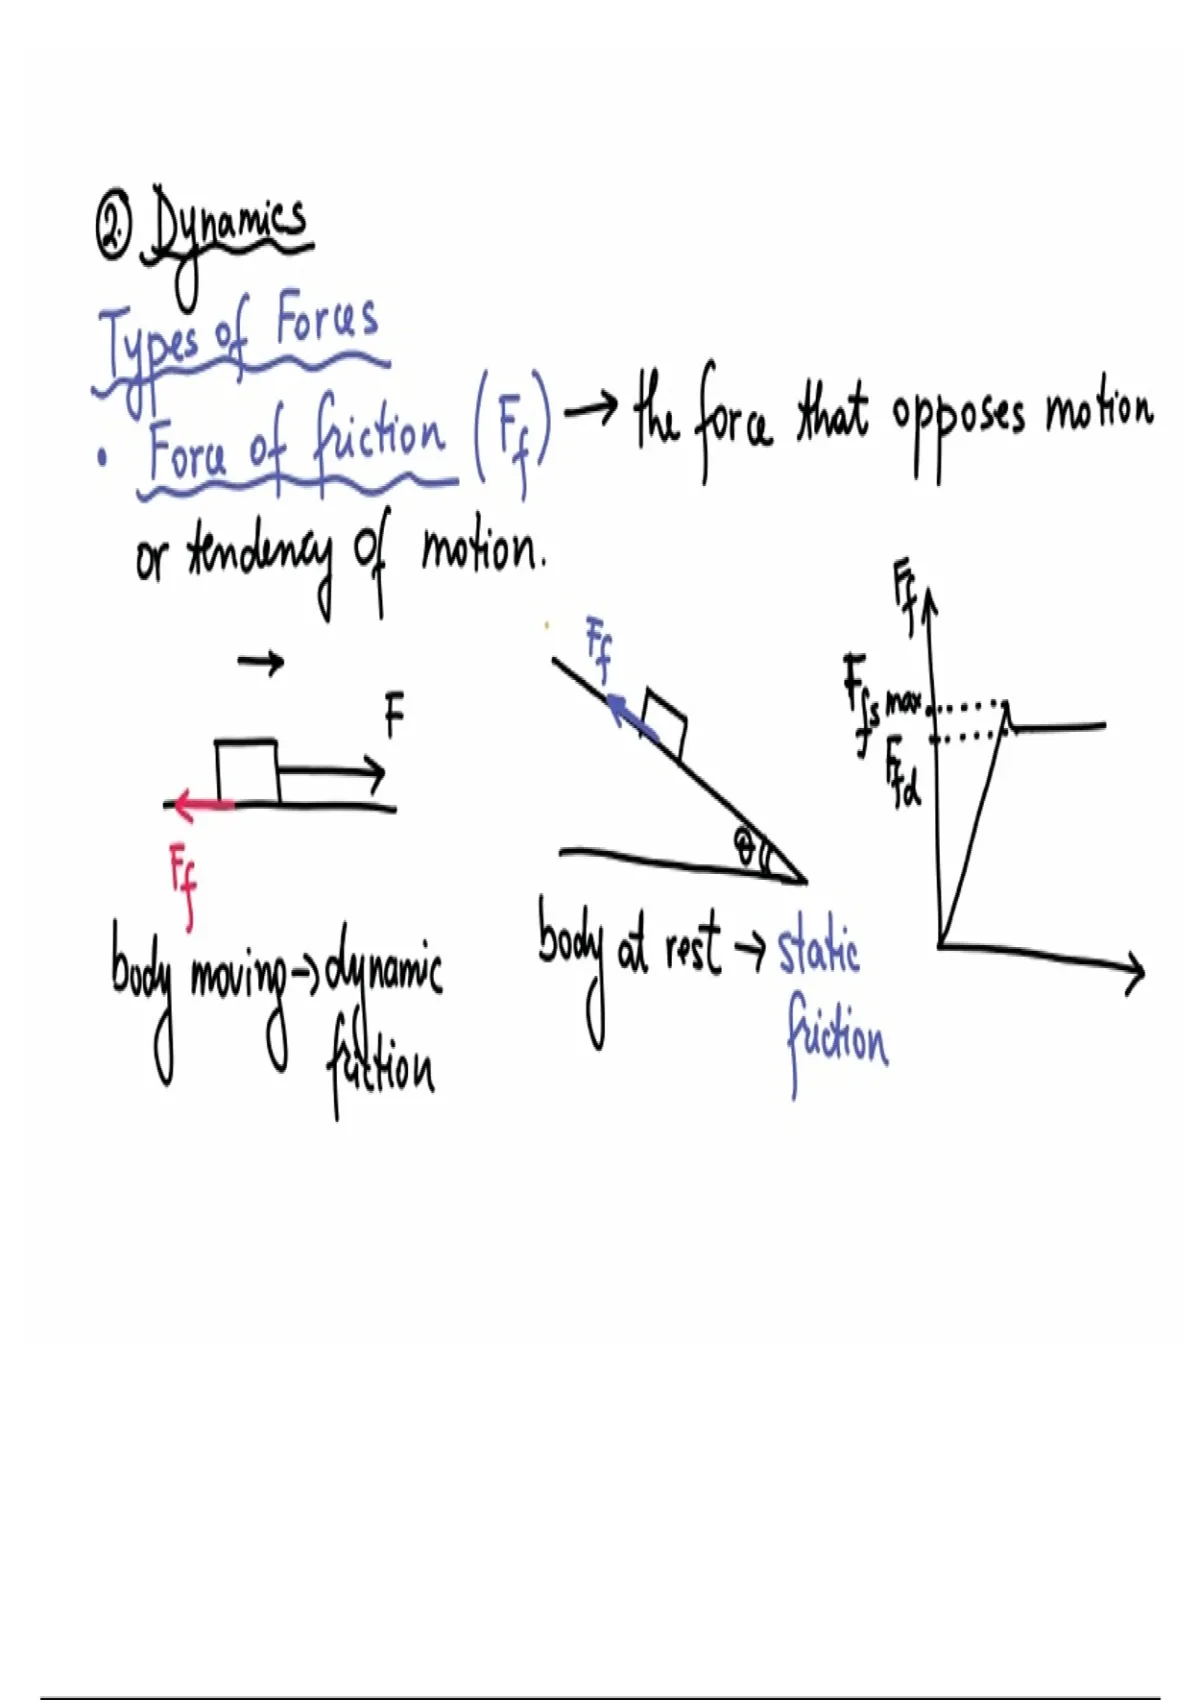 2. Dynamics
Types of Forces
• Force of friction (Ff) → the force that opposes motion
or tendency of motion.
→
F
Ff
body moving → dynamic
friction
Ff
θ
body at rest → static
friction
Ff
Ffs max
Ffd